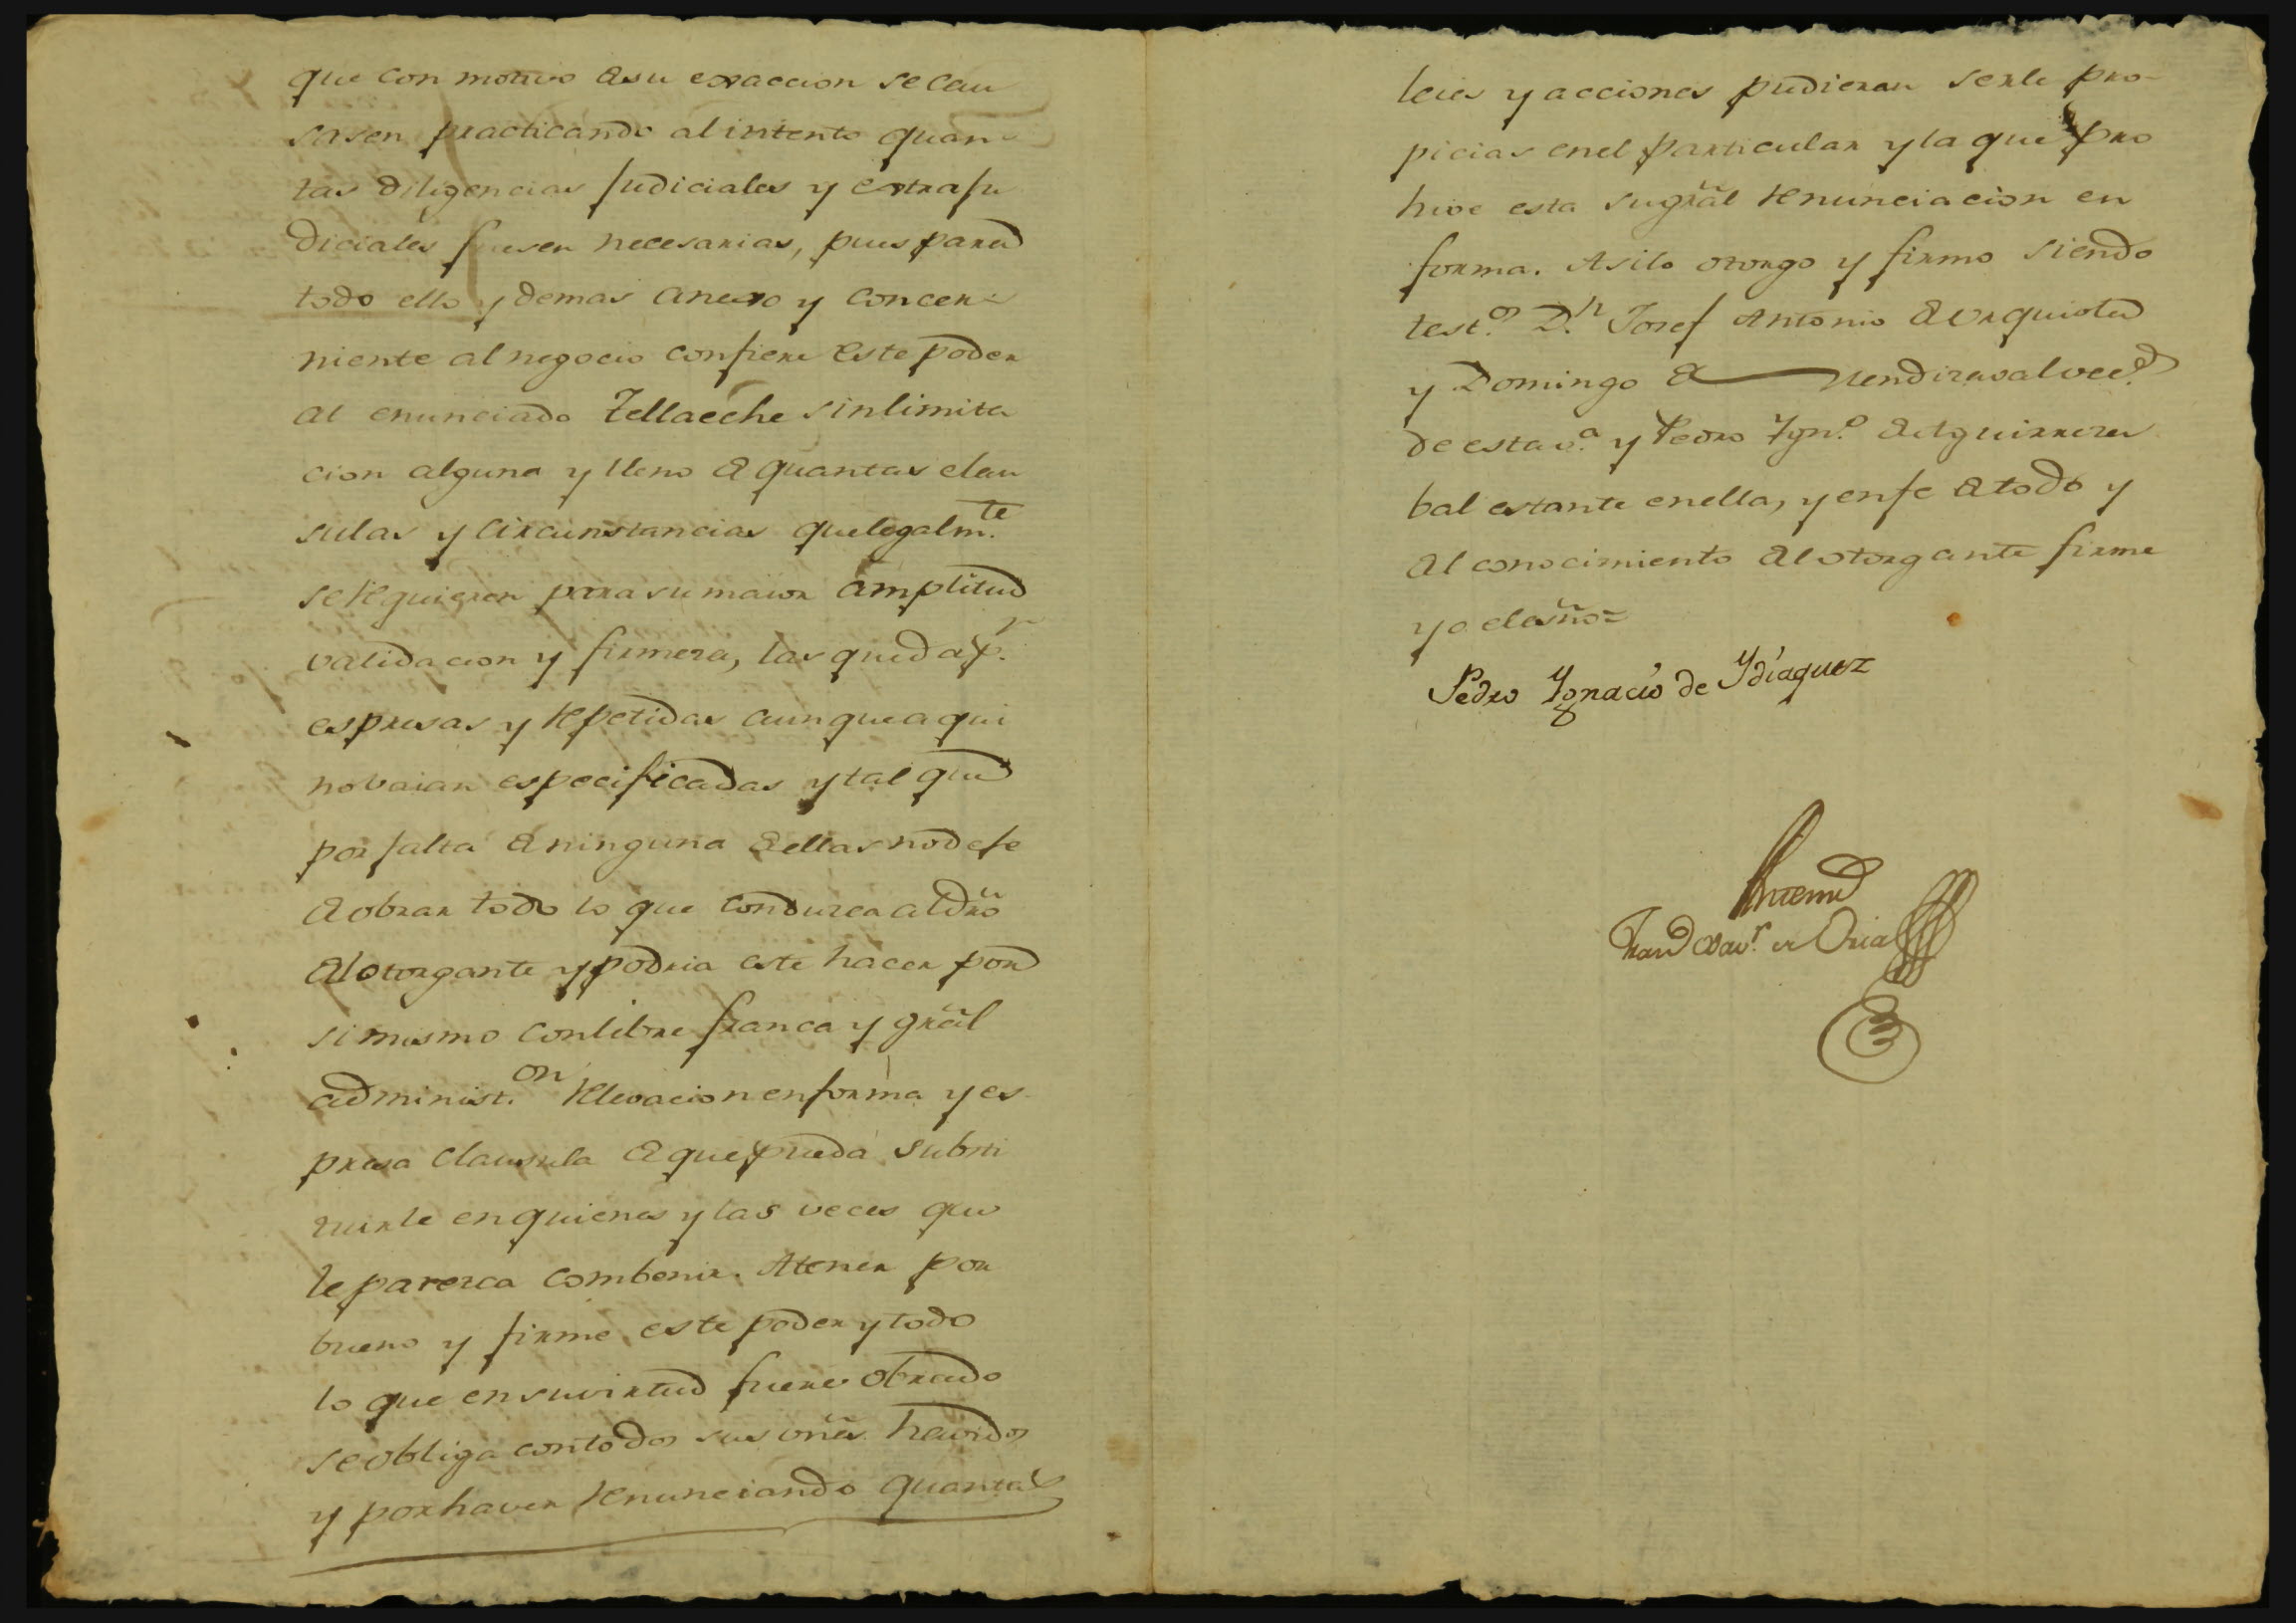 que con motivo de su exaccion se cau
sasen practicando al intento quan=
tas diligencias Judiciales y extraju
diciales fuesen necesarias, pues para
todo ello y demas anexo y concer=
niente al negocio confiere Este poder
al enunciado Tellaeche sin limita
cion alguna y lleno de quantas clau
sulas y circunstancias que legalm.te
se requieren para su maior amplitud
validacion y firmeza, las que da p.r
espresas y repetidas aunque aqui
no vaian especificadas y tal que
por falta de ninguna de ellas no deje
de obrar todo lo que conduzca al dr̃o
del otorgante y podria este hacer por
si mismo con libre franca y gra̅l
administ.on relevacion en forma y es
presa clausula de que pueda substi
tuirle en quienes y las veces que
le parezca combenir. A tener por
bueno y firme este poder y todo
lo que en su virtud fuere obrado
se obliga con todos sus vñes havidos
y por haver renunciando quantas
leies y acciones pudieran serle pro-
picias en el particular y la que pro
hive esta su gra̅l renunciacion en
forma. Asi lo otorgo y firmo siendo
test.os D.n Josef Antonio de Urquiola
y Domingo de Mendizaval vec.s
de esta v.a y Pedro Ygn.o de Aguirreza
bal estante en ella, y en fe de todo y
del conocimiento del otorgante firme
yo el esño=
Pedro Ygnacio de Ydiaquez
Antemi
Fran.co Xav.r de Oria